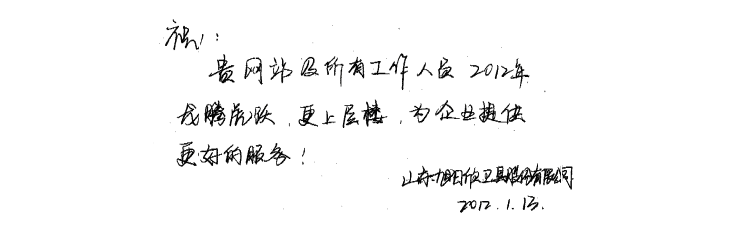 祝：
贵网站及所有工作人员2012年
龙腾虎跃，更上层楼，为企业提供
更好的服务！
山东旭日欣卫具股份有限公司
2012.1.13.